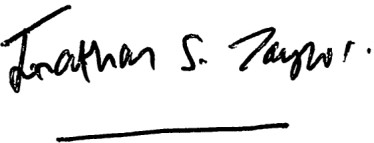 Jonathan S. Taylor.